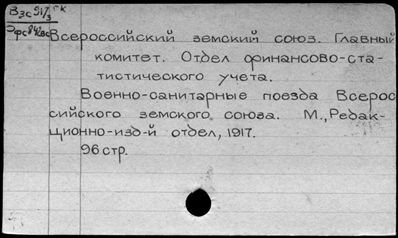 Всероссийский земский союз. Главный
комитет. Отдел финансово-ста-
тистического учета.
Военно-санитарные поезда Всерос
сийского земского союза. М., Редак-
ционно-изд-й отдел, 1917.
96 стр.